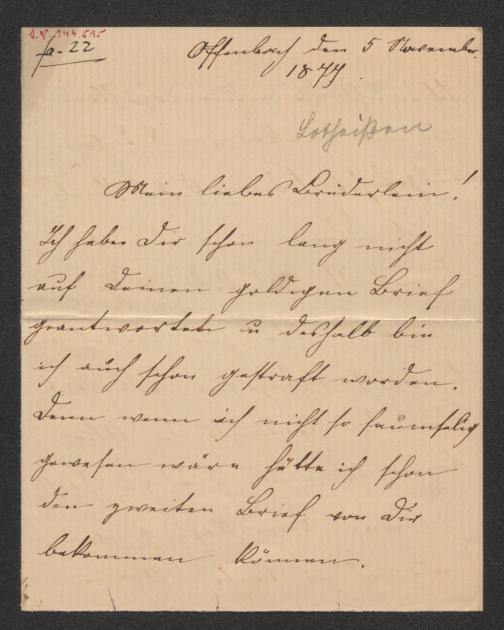 I.N. 144.515
fa-22
Offenbach den 5 November
1877.
Lotheißen
Mein liebes Brüderlein!
Ich habe Dir schon lang nicht
auf Deinen goldigen Brief
geantwortet u deshalb bin
ich auch schon gestraft worden.
Denn wenn ich nicht so saumselig
gewesen wäre hätte ich schon
den zweiten Brief von Dir
bekommen können.